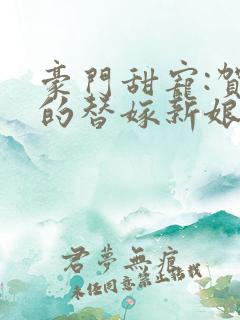 豪門甜寵:賀
的替嫁新娘
君夢無痕
未經同意禁止轉載